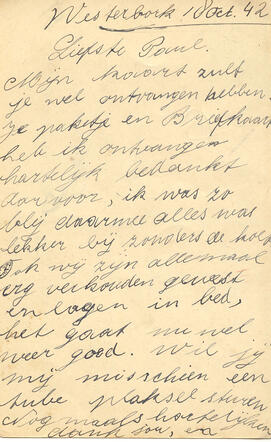 Westerbork 18 Oct. 42
Liefste Paul.
Mijn kaart zult
je wel ontvangen hebben.
Je paketje en Briefkaart
heb ik ontvangen
hartelijk bedankt
daarvoor, ik was zo
blij daarmee alles was
lekker bijzonders de
Ook wij zijn allemaal
erg verkouden geweest
en lagen in bed,
het gaat nu wel
weer good. Wil jij
mij misschien een
tube plaksel sturen
Nog maals hartelijken
dank jou, en